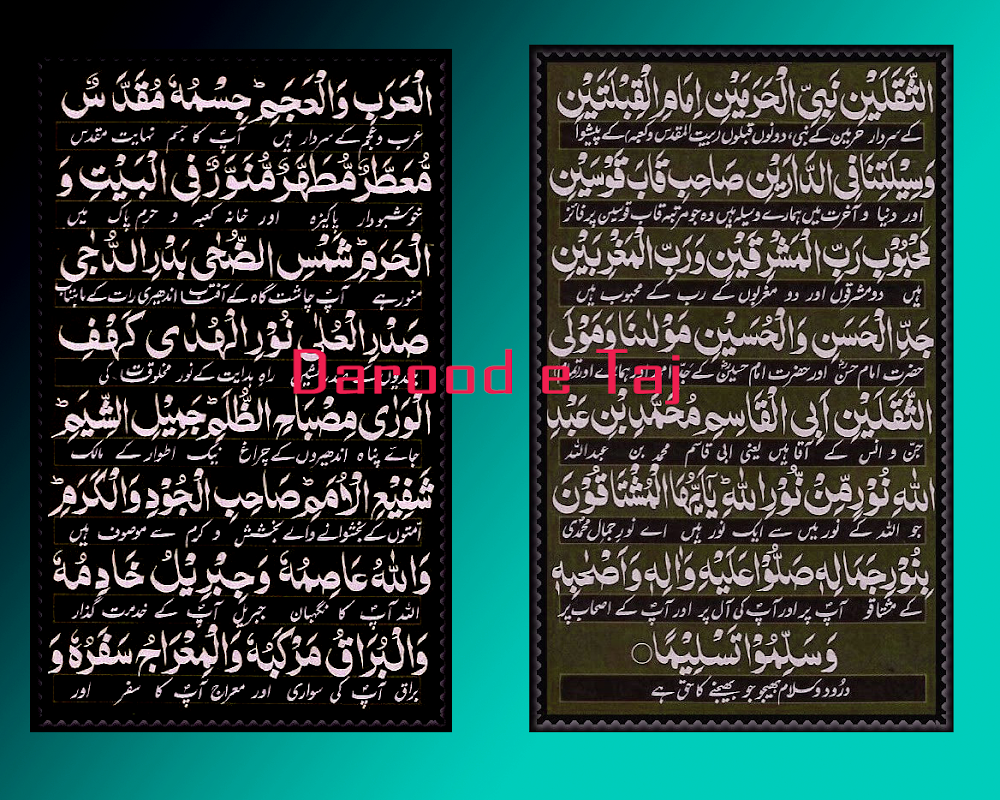 الْعَرَبِ وَالْعَجَمِ ؕ جِسْمُهٗ مُقَدَّسٌ
عرب و عجم کے سردار ہیں آپؐ کا جسم نہایت مقدس
مُّعَطَّرٌ مُّطَهَّرٌ مُّنَوَّرٌ فِی الْبَیْتِ وَ
خوشبودار پاکیزہ اور خانہ کعبہ و حرم پاک میں
الْحَرَمِ ؕ شَمْسِ الضُّحٰی بَدْرِ الدُّجٰی
منور ہے آپؐ چاشت گاہ کے آفتاب اندھیری رات کے ماہتاب
صَدْرِ الْعُلٰی نُوْرِ الْهُدٰی كَهْفِ
نشین راہِ ہدایت کے نور مخلوقات کی
الْوَرٰی مِصْبَاحِ الظُّلَمِ ؕ جَمِیْلِ الشِّیَمِ ؕ
جائے پناہ اندھیروں کے چراغ نیک اطوار کے مالک
شَفِیْعِ الْاُمَمِ ؕ صَاحِبِ الْجُوْدِ وَالْكَرَمِ ؕ
امتوں کے بخشوانے والے بخشش و کرم سے موصوف ہیں
وَاللّٰهُ عَاصِمُهٗ وَجِبْرِیْلُ خَادِمُهٗ
اللہ آپؐ کا نگہبان جبریل آپؐ کے خدمت گذار
وَالْبُرَاقُ مَرْكَبُهٗ وَالْمِعْرَاجُ سَفَرُهٗ وَ
براق آپؐ کی سواری اور معراج آپؐ کا سفر اور
Darood e Taj
الثَّقَلَیْنِ نَبِیِّ الْحَرَمَیْنِ اِمَامِ الْقِبْلَتَیْنِ
کے سردار حرمین کے نبی، دونوں قبلوں (بیت المقدس و کعبہ) کے پیشوا
وَسِیْلَتِنَا فِی الدَّارَیْنِ صَاحِبِ قَابَ قَوْسَیْنِ
اور دنیا و آخرت میں ہمارے وسیلہ ہیں وہ جو مرتبہ قاب قوسین پر فائز
مَحْبُوْبِ رَبِّ الْمَشْرِقَیْنِ وَرَبِّ الْمَغْرِبَیْنِ
ہیں دو مشرقوں اور دو مغربوں کے رب کے محبوب ہیں
جَدِّ الْحَسَنِ وَالْحُسَیْنِ مَوْلٰىنَا وَمَوْلَی
حضرت امام حسنؓ اور حضرت امام حسینؓ کے جد امجد ہمارے اور
الثَّقَلَیْنِ اَبِی الْقَاسِمِ مُحَمَّدِ بْنِ عَبْدِ
جن و انس کے آقا ہیں یعنی ابی قاسم محمد بن عبداللہ
اللّٰهِ نُوْرٍ مِّنْ نُّوْرِ اللّٰهِ ؕ یٰۤاَیُّهَا الْمُشْتَاقُوْنَ
جو اللہ کے نور میں سے ایک نور ہیں اے نورِ جمالِ محمدی
بِنُوْرِ جَمَالِهٖ صَلُّوْا عَلَیْهِ وَاٰلِهٖ وَاَصْحٰبِهٖ
کے مشتاقو آپؐ پر اور آپؐ کی آل پر اور آپؐ کے اصحاب پر
وَسَلِّمُوْا تَسْلِیْمًا
درود و سلام بھیجو جو بھیجنے کا حق ہے